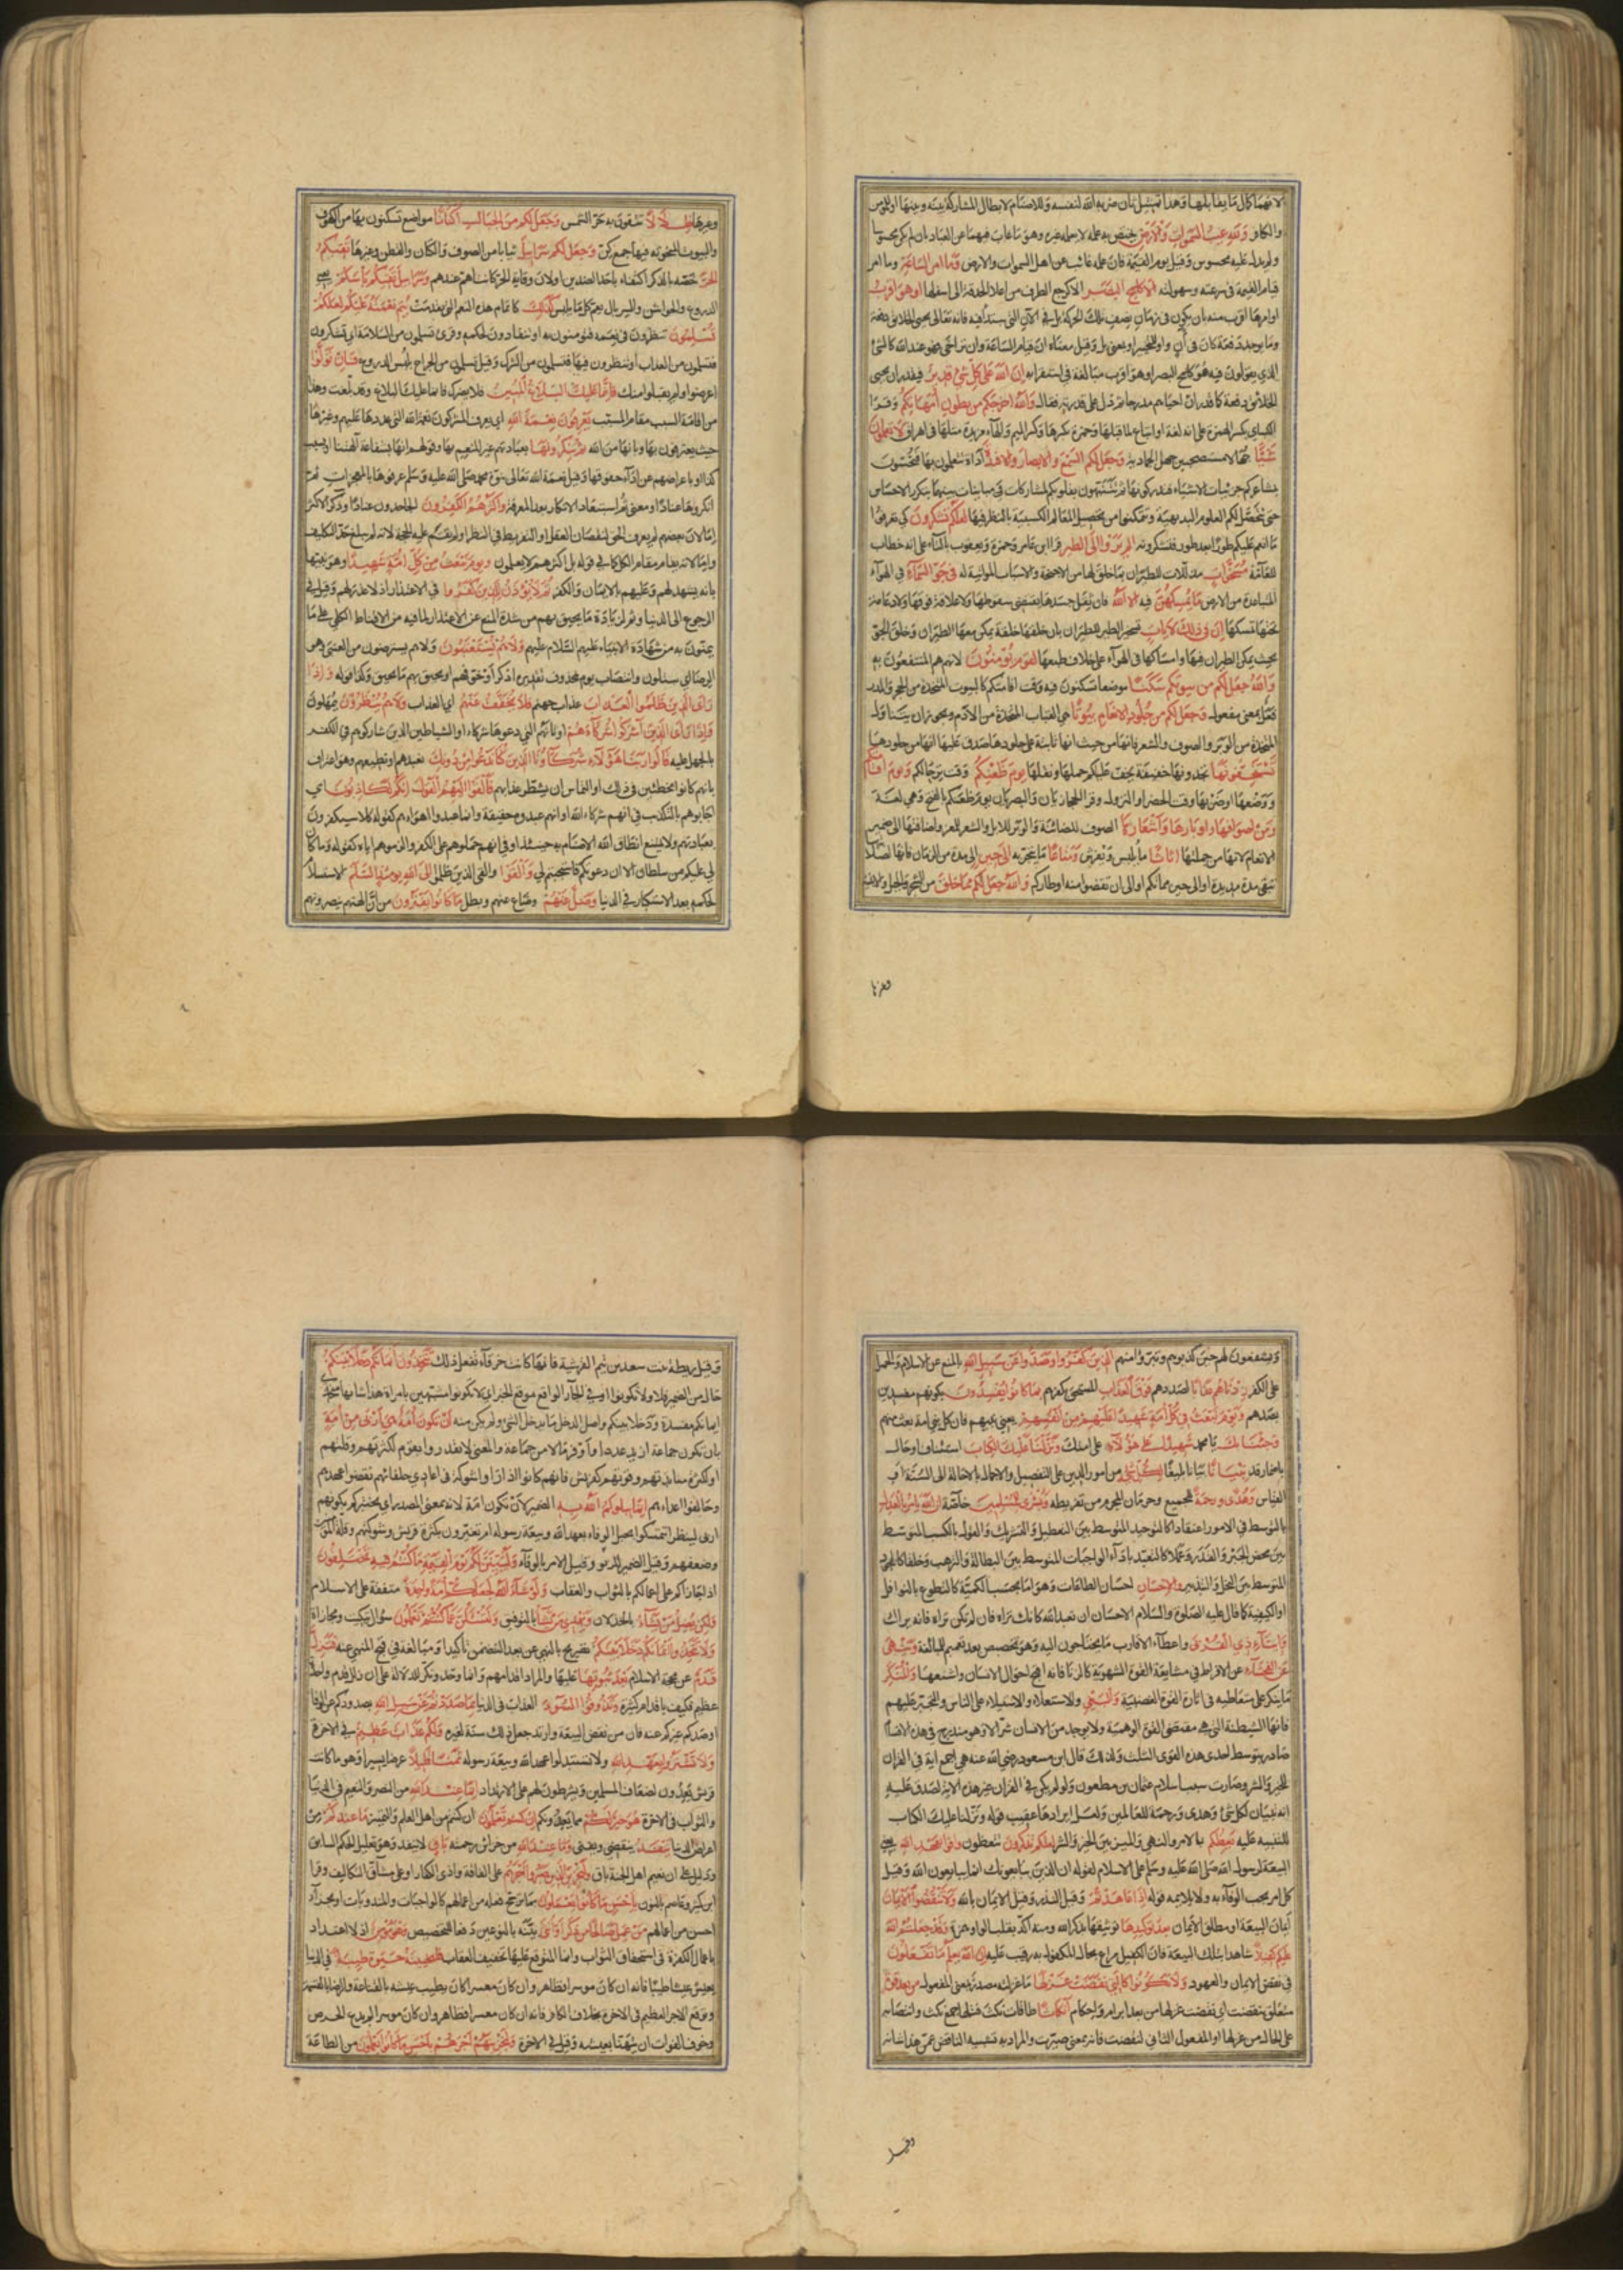 لانهما كمال ما يقابلهما وهذا تمثيل ثان ضربه الله لنفسه وللاصنام لابطال المشاركة بينه وبينها او للمؤمن
والكافر ولله غيب السموات والارض يختص به علمه لا يعلمه غيره وهو ما غاب فيهما عن العباد بان لم يكن محسوسا
ولم يدل عليه محسوس وقيل يوم القيمة فان علمه غائب عن اهل السموات والارض وما امر الساعة وما امر
قيام القيمة في سرعته وسهولته الا كلمح البصر الا كرجع الطرف من اعلا الحدقة الى اسفلها او هو اقرب
او امرها اقرب منه بان يكون في زمان نصف تلك الحركة بل في الآن التي يبتدأ فيه فانه تعالى يحيى الخلائق دفعة
وما يوجد دفعة كان في آن واو للتخيير او بمعنى بل وقيل معناه ان قيام الساعة وان تراخى فهو عند الله كالشئ
الذي يقولون فيه هو كلمح البصر او هو اقرب مبالغة في استقرابه ان الله على كل شئ قدير فيقدر ان يحيى
الخلائق دفعة كما قدر ان احياهم مدرجا ثم دل على قدرته فقال والله اخرجكم من بطون امهاتكم وقرا
الكسائي بكسر الهمزة على انه لغة او اتباع لما قبلها وحمزة بكسرها وكسر الميم والهاء مزيدة مثلها في اهراق لا تعلمون
شيئا جهالا مستصحبين جهل الجمادية وجعل لكم السمع والابصار والافئدة اداة تتعلمون بها فتحسون
بمشاعركم جزئيات الاشياء فتدركونها ثم تتنبهون بقلوبكم لمشاركات ومباينات بينها بتكرر الاحساس
حتى تتحصل لكم العلوم البديهية وتتمكنوا من تحصيل المعالم الكسبية بالنظر فيها لعلكم تشكرون كي تعرفوا
ما انعم عليكم طورا بعد طور فتشكرونه الم يروا الى الطير قرا ابن عامر وحمزة ويعقوب بالتاء على انه خطاب
للعامة مسخرات مذللات للطيران بما خلق لها من الاجنحة والاسباب المواتية له في جو السماء في الهواء
المتباعدة من الارض ما يمسكهن فيه الا الله فان ثقل جسدها يقتضى سقوطها ولا علاقة فوقها ولا دعامة
تحتها تمسكها ان في ذلك لايات تسخير الطير للطيران بان خلقها خلقة يمكن معها الطيران وخلق الجو
بحيث يمكن الطيران فيها وامساكها في الهواء على خلاف طبعها لقوم يؤمنون لانهم هم المنتفعون به
والله جعل لكم من بيوتكم سكنا موضعا تسكنون فيه وقت اقامتكم كالبيوت المتخذة من الحجر والمدر
فعل بمعنى مفعول وجعل لكم من جلود الانعام بيوتا هي القباب المتخذة من الادم ويجوز ان يتناول
المتخذة من الوبر والصوف والشعر فانها من حيث انها نابتة على جلودها صدق عليها انها من جلودها
تستخفونها تجدونها خفيفة يخف عليكم حملها ونقلها يوم ظعنكم وقت ترحالكم ويوم اقامتكم
ووضعها او ضربها وقت الحضر او النزول وقرا الحجازيان والبصريان يوم ظعنكم بالفتح وهي لغة
ومن اصوافها واوبارها واشعارها الصوف للضائنة والوبر للابل والشعر للمعز واضافتها الى ضمير
الانعام لانها من جملتها اثاثا ما يلبس ويفرش ومتاعا ما يتجر به الى حين الى مدة من الزمان فانها لصلابتها
تبقى مدة مديدة او الى حين مماتكم او الى ان تقضوا منه اوطاركم والله جعل لكم مما خلق من الشجر والجبل والابنية
وغيرها
وغيرها ظلالا تتقون به حر الشمس وجعل لكم من الجبال اكنانا مواضع تسكنون بها من الكهوف
والبيوت المنحوتة فيها جمع كن وجعل لكم سرابيل ثيابا من الصوف والكتان والقطن وغيرها تقيكم
الحر خصه بالذكر اكتفاء باحد الضدين او لان وقاية الحر كانت اهم عندهم وسرابيل تقيكم باسكم يعني
الدروع والجواشن والسربال يعم كل ما يلبس كذلك كاتمام هذه النعم التي تقدمت يتم نعمته عليكم لعلكم
تسلمون تنظرون في نعمه فتؤمنون به او تنقادون لحكمه وقرئ تسلمون من السلامة اي تشكرون
فتسلمون من العذاب او تنظرون فيها فتسلمون من الشرك وقيل تسلمون من الجراح بلبس الدروع فان تولوا
اعرضوا ولم يقبلوا منك فانما عليك البلاغ المبين فلا يضرك فانما عليك البلاغ وقد بلغت وهذا
من اقامة السبب مقام المسبب يعرفون نعمة الله اي يعرف المشركون نعمة الله التي عددها عليهم وغيرها
حيث يعترفون بها وبانها من الله ثم ينكرونها بعبادتهم غير المنعم بها وقولهم انها بشفاعة الهتنا او بسبب
كذا او باعراضهم عن اداء حقوقها وقيل نعمة الله تعالى نبوة محمد صلى الله عليه وسلم عرفوها بالمعجزات ثم
انكروها عنادا ومعنى ثم استبعاد الانكار بعد المعرفة واكثرهم الكافرون الجاحدون عنادا وذكر الاكثر
اما لان بعضهم لم يعرف الحق لنقصان العقل او التفريط في النظر او لم يقم عليه الحجة لانه لم يبلغ حد التكليف
واما لانه يقام مقام الكل كما في قوله بل اكثرهم لا يعلمون ويوم نبعث من كل امة شهيدا وهو نبيها
بانه يشهد لهم وعليهم بالايمان والكفر ثم لا يؤذن للذين كفروا في الاعتذار اذ لا عذر لهم وقيل في
الرجوع الى الدنيا وثم لزيادة ما يحيق بهم من شدة المنع عن الاعتذار لما فيه من الاقناط الكلي على ما
يمنون به من شهادة الانبياء عليهم السلام عليهم ولا هم يستعتبون ولا هم يسترضون من العتبى وهي
الرضا اي يسئلون وانتصاب يوم بمحذوف تقديره اذكر او خوفهم او يحيق بهم ما يحيق وكذا قوله واذا
رأى الذين ظلموا العذاب عذاب جهنم فلا يخفف عنهم اي العذاب ولا هم ينظرون يمهلون
واذا رأى الذين اشركوا شركاءهم اوثانهم التي دعوها شركاء او الشياطين الذين شاركوهم في الكفر
بالحمل عليه قالوا ربنا هؤلاء شركاؤنا الذين كنا ندعو من دونك نعبدهم او نطيعهم وهو اعتراف
بانهم كانوا مخطئين في ذلك او التماس ان يشطر عذابهم فالقوا اليهم القول انكم لكاذبون اي
اجابوهم بالتكذيب في انهم شركاء الله او انهم عبدوهم حقيقة وانما عبدوا اهواءهم كقوله كلا سيكفرون
بعبادتهم ولا يمتنع انطاق الله الاصنام به حينئذ او في انهم حملوهم على الكفر والزموهم اياه كقوله وما كان
لي عليكم من سلطان الا ان دعوتكم فاستجبتم لي والقوا والقى الذين ظلموا الى الله يومئذ السلم الاستسلام
لحكمه بعد الاستكبار في الدنيا وضل عنهم وضاع عنهم وبطل ما كانوا يفترون من ان الهتهم ينصرونهم
ويشفعون لهم حين كذبوهم وتبرؤا منهم الذين كفروا وصدوا عن سبيل الله بالمنع عن الاسلام والحمل
على الكفر زدناهم عذابا لصدهم فوق العذاب المستحق بكفرهم بما كانوا يفسدون بكونهم مفسدين
بصدهم ويوم نبعث في كل امة شهيدا عليهم من انفسهم يعني نبيهم فان كل نبي امة بعث منهم
وجئنا بك يا محمد شهيدا على هؤلاء على امتك ونزلنا عليك الكتاب استئناف او حال
باضمار قد تبيانا بيانا بليغا لكل شئ من امور الدين على التفصيل والاجمال بالاحالة الى السنة او
القياس وهدى ورحمة للجميع وحرمان المحروم من تفريطه وبشرى للمسلمين خاصة ان الله يامر بالعدل
بالتوسط في الامور اعتقادا كالتوحيد المتوسط بين التعطيل والتشريك والقول بالكسب المتوسط
بين محض الجبر والقدر وعملا كالتعبد باداء الواجبات المتوسط بين البطالة والترهب وخلقا كالجود
المتوسط بين البخل والتبذير والاحسان احسان الطاعات وهو اما بحسب الكمية كالتطوع بالنوافل
او الكيفية كما قال عليه الصلوة والسلام الاحسان ان تعبد الله كانك تراه فان لم تكن تراه فانه يراك
وايتاء ذي القربى واعطاء الاقارب ما يحتاجون اليه وهو تخصيص بعد تعميم للمبالغة وينهى
عن الفحشاء عن الافراط في مشايعة القوة الشهوية كالزنا فانه اقبح احوال الانسان واشنعها والمنكر
ما ينكر على متعاطيه في اثارة القوة الغضبية والبغي والاستعلاء والاستيلاء على الناس والتجبر عليهم
فانها الشيطنة التي هي مقتضى القوة الوهمية ولا يوجد من الانسان شر الا وهو مندرج في هذه الاقسام
صادر بتوسط احدى هذه القوى الثلث ولذلك قال ابن مسعود رضي الله عنه هي اجمع اية في القران
للخير والشر وصارت سبب اسلام عثمان بن مظعون ولو لم يكن في القران غير هذه الاية لصدق عليه
انه تبيان لكل شئ وهدى ورحمة للعالمين ولعل ايرادها عقيب قوله ونزلنا عليك الكتاب
للتنبيه عليه يعظكم بالامر والنهي والميز بين الخير والشر لعلكم تذكرون تتعظون واوفوا بعهد الله يعني
البيعة لرسول الله صلى الله عليه وسلم على الاسلام لقوله ان الذين يبايعونك انما يبايعون الله وقيل
كل امر يجب الوفاء به ولا يلايمه قوله اذا عاهدتم وقيل النذر وقيل الايمان بالله ولا تنقضوا الايمان
ايمان البيعة او مطلق الايمان بعد توكيدها توثيقها بذكر الله ومنه اكد بقلب الواو همزة وقد جعلتم الله
عليكم كفيلا شاهدا بتلك البيعة فان الكفيل مراع بحال المكفول به رقيب عليه ان الله يعلم ما تفعلون
في نقض الايمان والعهود ولا تكونوا كالتي نقضت غزلها ما غزلته مصدر بمعنى المفعول من بعد قوة
متعلق بنقضت اي نقضت غزلها من بعد ابرام واحكام انكاثا طاقات نكث فتلها جمع نكث وانتصابه
على الحال من غزلها او المفعول الثاني لنقضت فانه بمعنى صيرت والمراد به تشبيه الناقض بمن هذا شانه
وقيل
وقيل بريطة بنت سعد بن تيم القرشية فانها كانت خرقاء تفعل ذلك تتخذون ايمانكم دخلا بينكم
حال من الضمير في ولا تكونوا او في الجار الواقع موقع الخبر اي لا تكونوا متشبهين بامراة هذا شانها متخذي
ايمانكم مفسدة ودخلا بينكم واصل الدخل ما يدخل الشئ ولم يكن منه ان تكون امة هي اربى من امة
بان تكون جماعة ازيد عددا واوفر مالا من جماعة والمعنى لا تغدروا بقوم لكثرتكم وقلتهم
او لكثرة منابذتهم وقوتهم كقريش فانهم كانوا اذا راوا شوكة في اعادي حلفائهم نقضوا عهدهم
وحالفوا اعداءهم انما يبلوكم الله به الضمير لان تكون امة لانه بمعنى المصدر اي يختبركم بكونهم
اربى لينظر اتتمسكوا بحبل الوفاء بعهد الله وبيعة رسوله ام تغترون بكثرة قريش وشوكتهم وقلة المؤمنين
وضعفهم وقيل الضمير للربو وقيل الامر بالوفاء وليبينن لكم يوم القيمة ما كنتم فيه تختلفون
اذ اجازاكم على اعمالكم بالثواب والعقاب ولو شاء الله لجعلكم امة واحدة متفقة على الاسلام
ولكن يضل من يشاء بالخذلان ويهدي من يشاء بالتوفيق ولتسئلن عما كنتم تعملون سؤال تبكيت ومجازاة
ولا تتخذوا ايمانكم دخلا بينكم تصريح بالنهي عنه بعد التضمين تأكيدا ومبالغة في قبح المنهي عنه فتزل
قدم عن محجة الاسلام بعد ثبوتها عليها والمراد اقدامهم وانما وحد ونكر للدلالة على ان زلل قدم واحد
عظيم فكيف باقدام كثيرة وتذوقوا السوء العذاب في الدنيا بما صددتم عن سبيل الله بصدودكم عن الوفا
او صدكم غيركم عنه فان من نقض البيعة وارتد جعل ذلك سنة لغيره ولكم عذاب عظيم في الاخرة
ولا تشتروا بعهد الله ولا تستبدلوا عهد الله وبيعة رسوله ثمنا قليلا عرضا يسيرا وهو ما كانت
قريش يعدون لضعاف المسلمين ويشرطون لهم على الارتداد انما عند الله من النصر والتغنيم في الدنيا
والثواب في الاخرة هو خير لكم مما يعدونكم ان كنتم تعلمون ان كنتم من اهل العلم والتمييز ما عندكم من
اعراض الدنيا ينفد ينقضي ويفنى وما عند الله من خزائن رحمته باق لا ينفد وهو تعليل للحكم السابق
ودليل على ان نعيم اهل الجنة باق وليجزين الذين صبروا اجرهم على الفاقة واذى الكفار او على مشاق التكاليف وقرا
ابن كثير وعاصم بالنون باحسن ما كانوا يعملون بما ترجح فعله من اعمالهم كالواجبات والمندوبات او بجزاء
احسن من اعمالهم من عمل صالحا من ذكر او انثى بينه بالنوعين دفعا للتخصيص وهو مؤمن اذ لا اعتداد
باعمال الكفرة في استحقاق الثواب وانما المتوقع عليها تخفيف العقاب فلنحيينه حيوة طيبة في الدنيا
يعيش عيشا طيبا فانه ان كان موسرا فظاهر وان كان معسرا كان يطيب عيشه بالقناعة والرضا بالقسمة
وتوقع الاجر العظيم في الاخرة بخلاف الكافر فانه ان كان معسرا فظاهر وان كان موسرا لم يدع الحرص
وخوف الفوات ان يتهنا بعيشه وقيل في الاخرة ولنجزينهم اجرهم باحسن ما كانوا يعملون من الطاعة